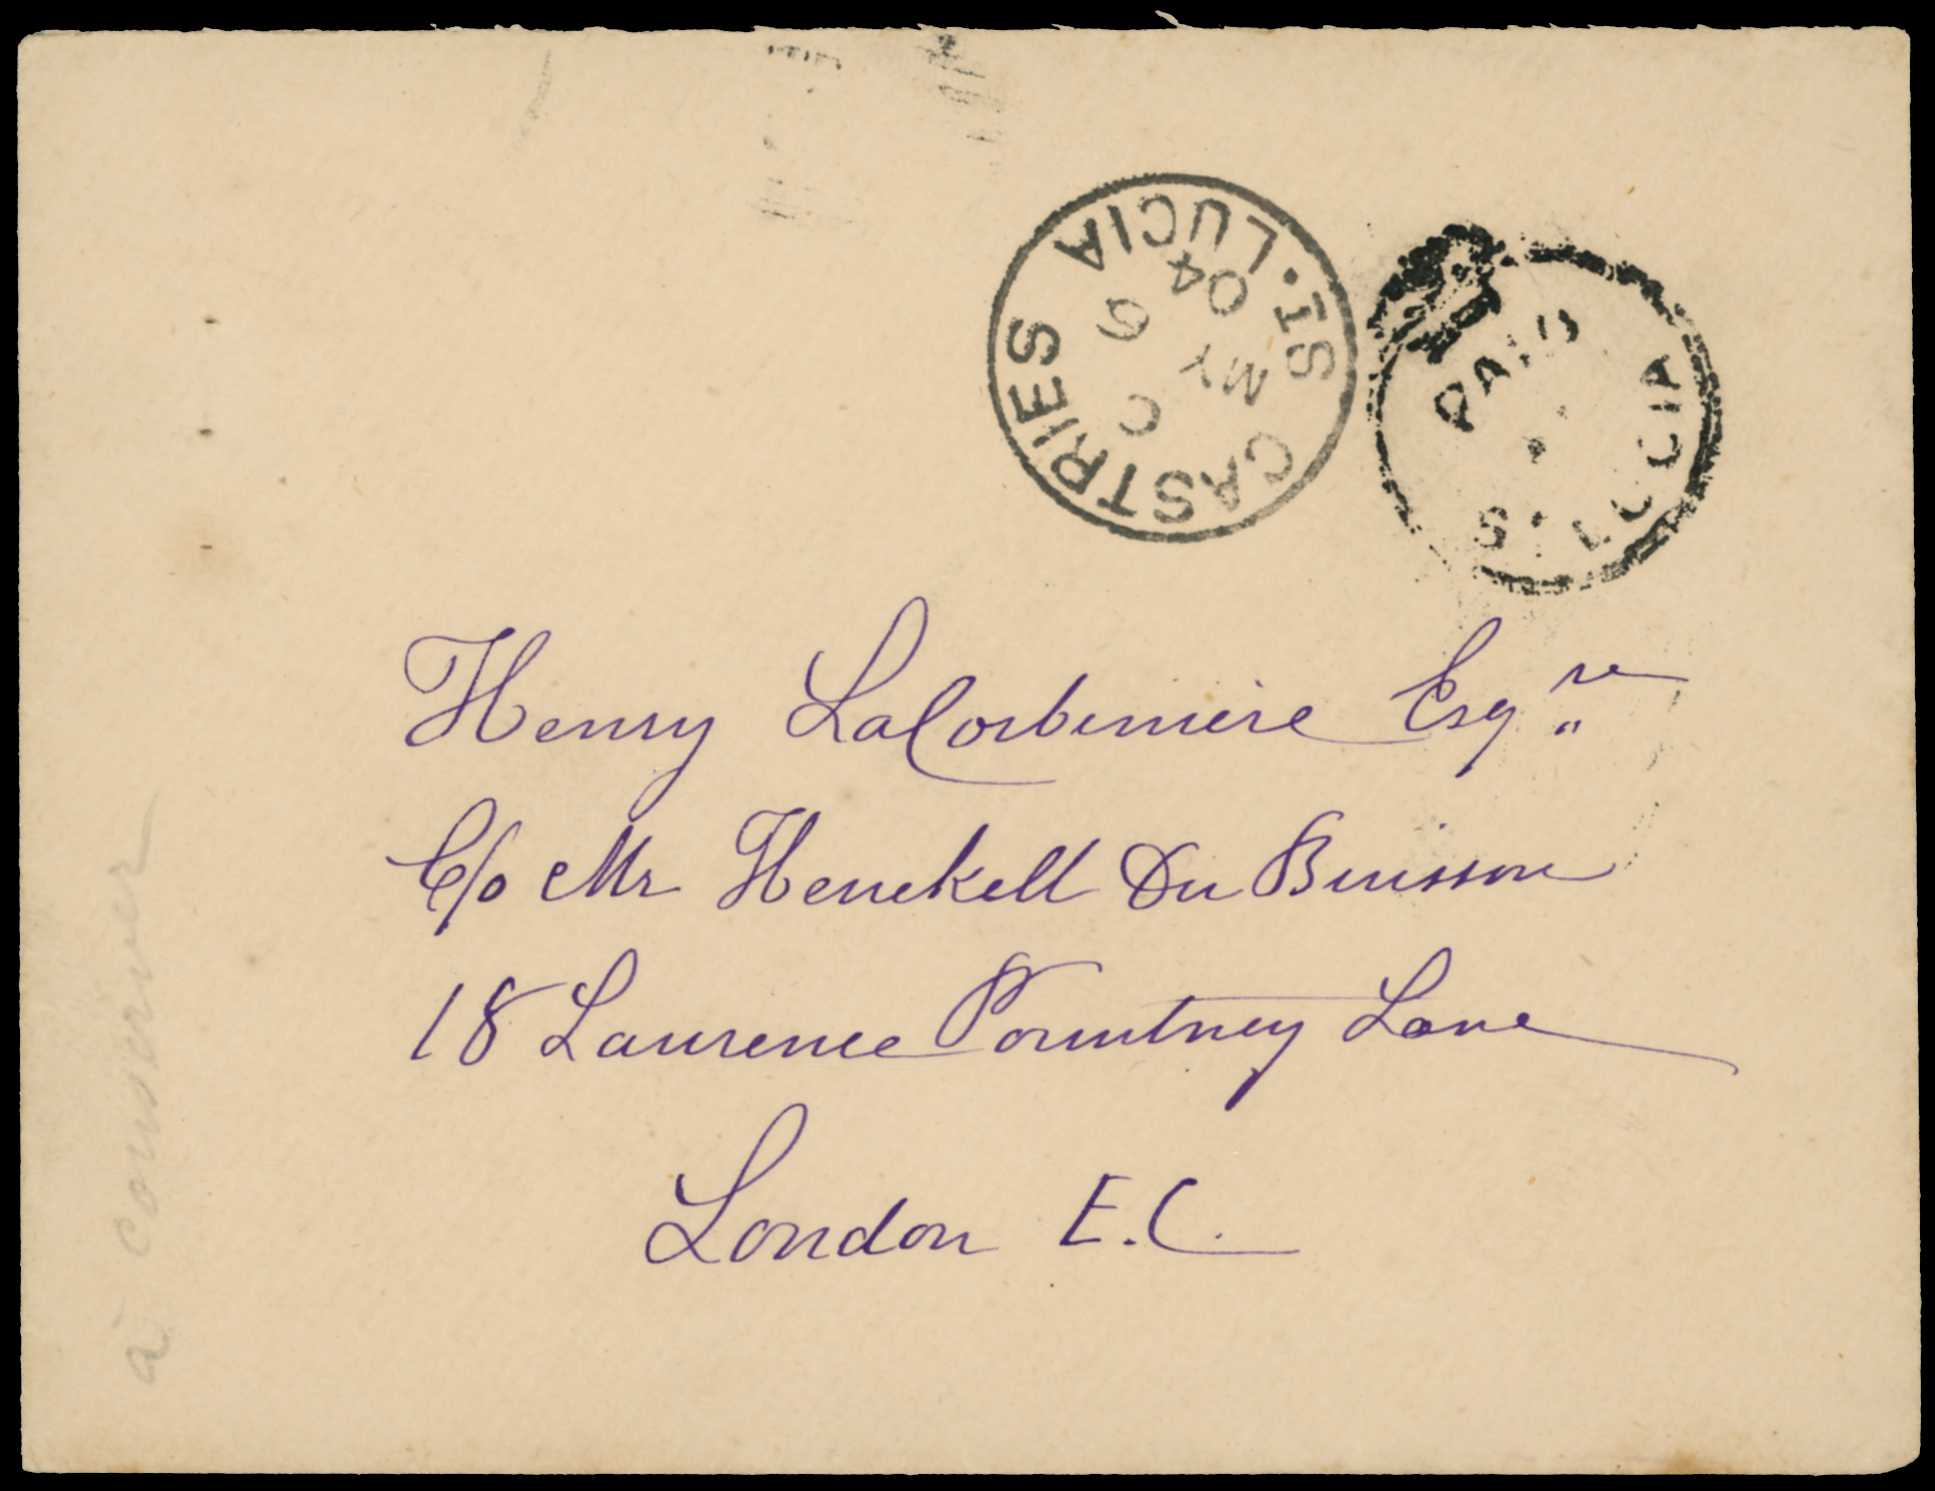 CASTRIES
C
MY
04
ST. LUCIA
PAID
ST. LUCIA
Henry LaCorbiniere Esqre
C/o Mr Henckell Du Buisson
18 Laurence Pountney Lane
London E.C.
à conserver